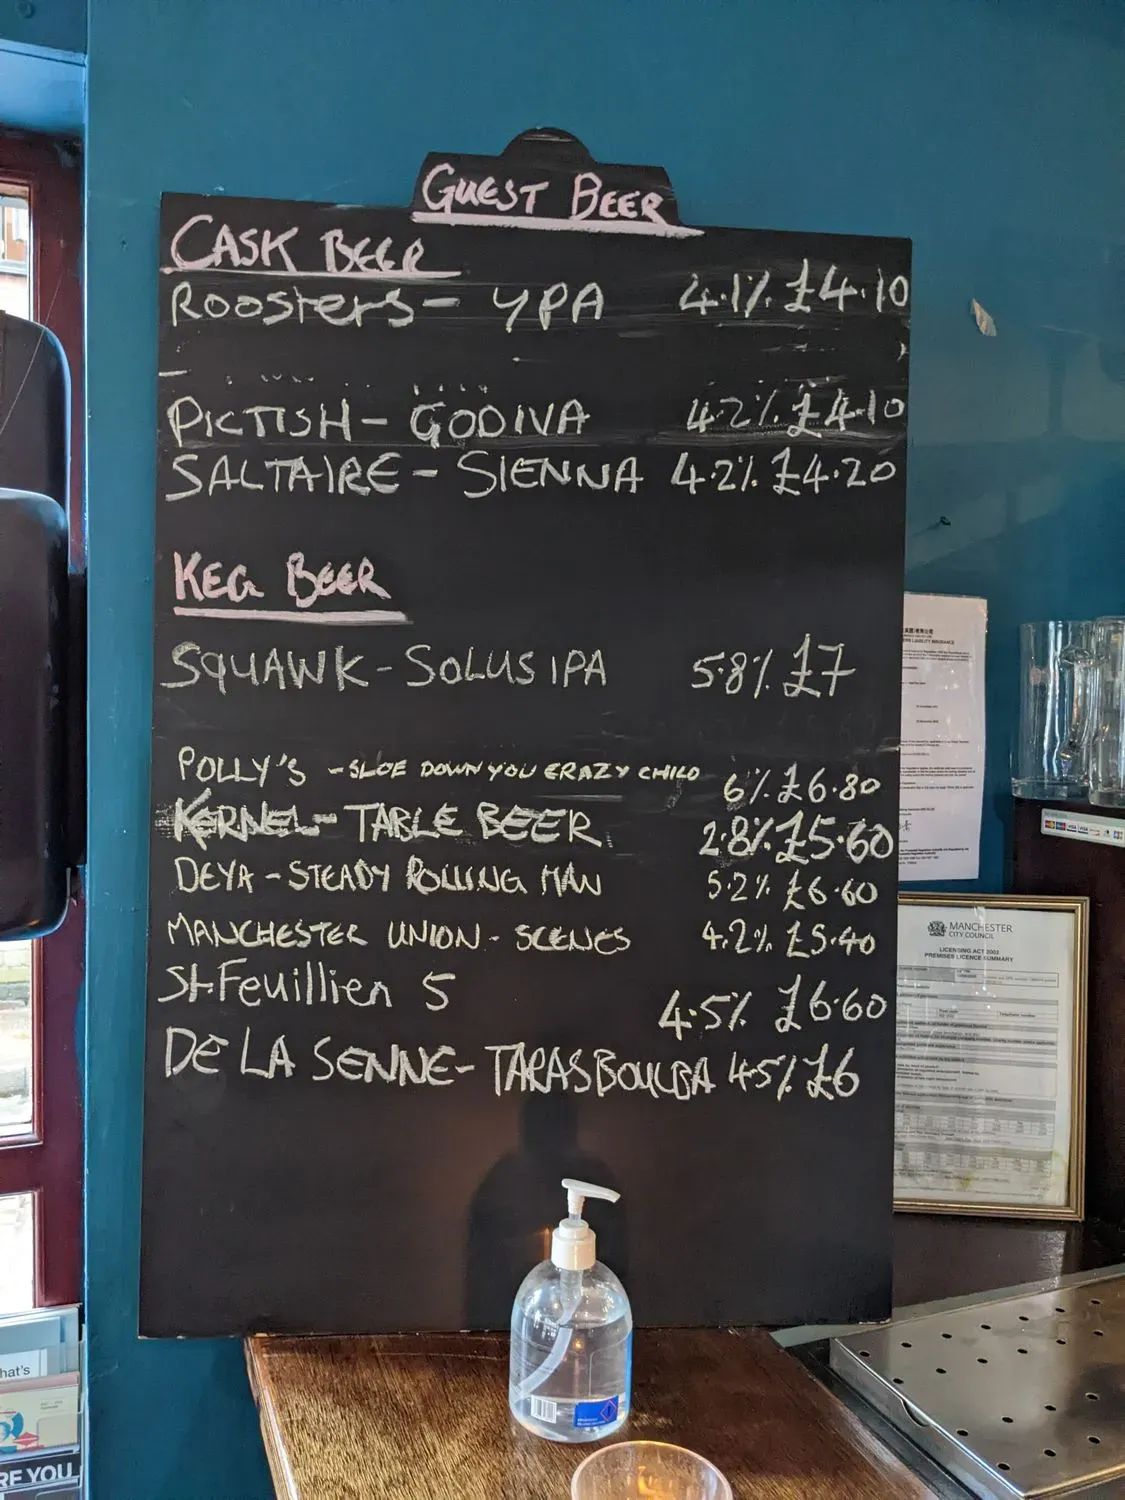 GUEST BEER
CASK BEER
ROOSTERS - YPA 4.1% £4.10
PICTISH - GODIVA 4.2% £4.10
SALTAIRE - SIENNA 4.2% £4.20
KEG BEER
SQUAWK - SOLUS IPA 5.8% £7
POLLY'S - SLOE DOWN YOU CRAZY CHILD 6% £6.80
KERNEL - TABLE BEER 2.8% £5.60
DEYA - STEADY ROLLING MAN 5.2% £6.60
MANCHESTER UNION - SCENES 4.2% £5.40
St-Feuillien 5 4.5% £6.60
DE LA SENNE - TARAS BOULBA 4.5% £6
MANCHESTER
CITY COUNCIL
LICENSING ACT 2003
PREMISES LICENCE SUMMARY
VISA
hat's
RE YOU